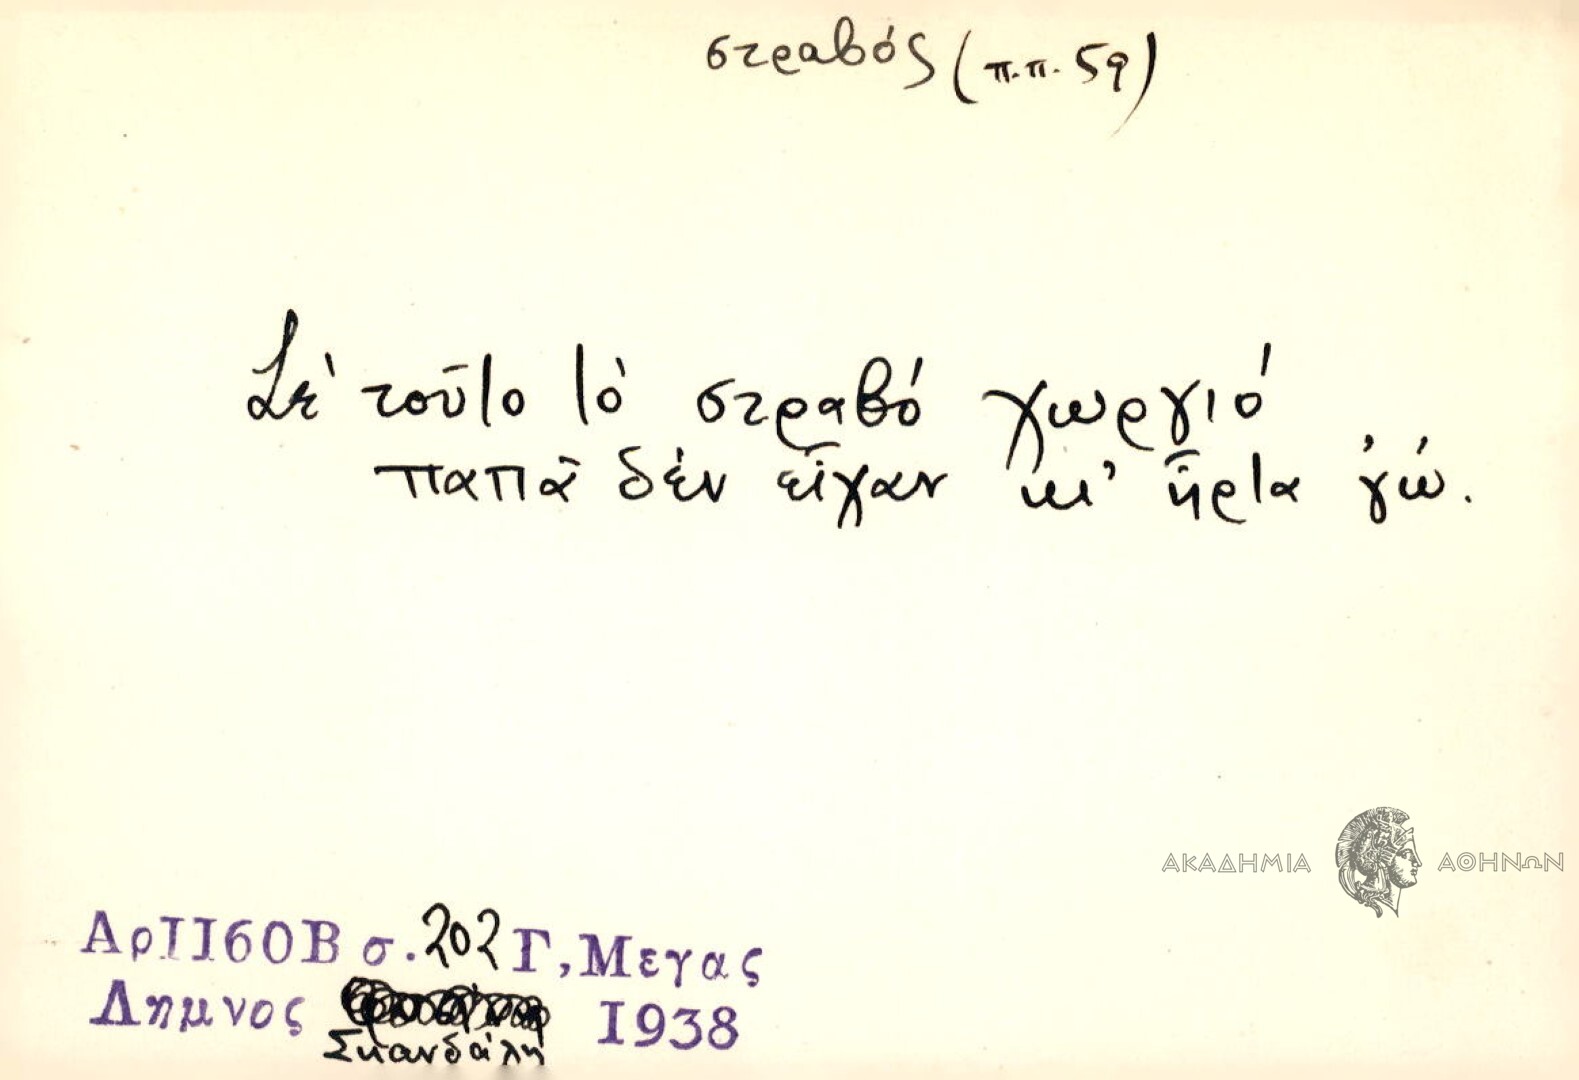 στραβός (π.π. 59)
Σὲ τοῦτο τὸ στραβό χωργιό
παπᾶ δὲν εἶχαν κι' ἦρτα 'γώ.
ΑΚΑΔΗΜΙΑ ΑΘΗΝΩΝ
Αρ1160Β σ. 202 Γ, Μεγας
Λημνος 1938
Σκανδάλη